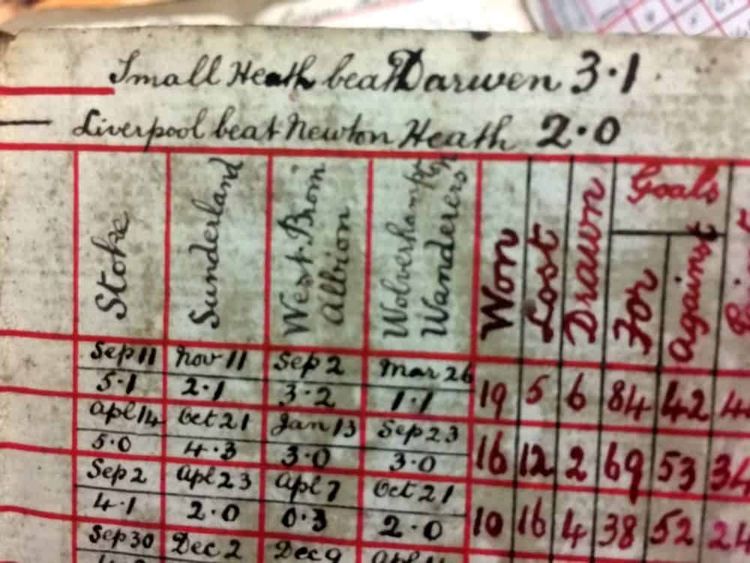 Small Heath beat Darwen 3·1
Liverpool beat Newton Heath 2·0
Stoke Sunderland West Brom Albion Wolverhampton Wanderers Won Lost Drawn Goals For Against
Sep 11 Nov 11 Sep 2 Mar 26
5·1 2·1 3·2 1·1 19 5 6 84 42
Apl 14 Oct 21 Jan 13 Sep 23
5·0 4·3 3·0 3·0 16 12 2 69 53 34
Sep 2 Apl 23 Apl 7 Oct 21
4·1 2·0 0·3 2·0 10 16 4 38 52 24
Sep 30 Dec 2 Dec 9